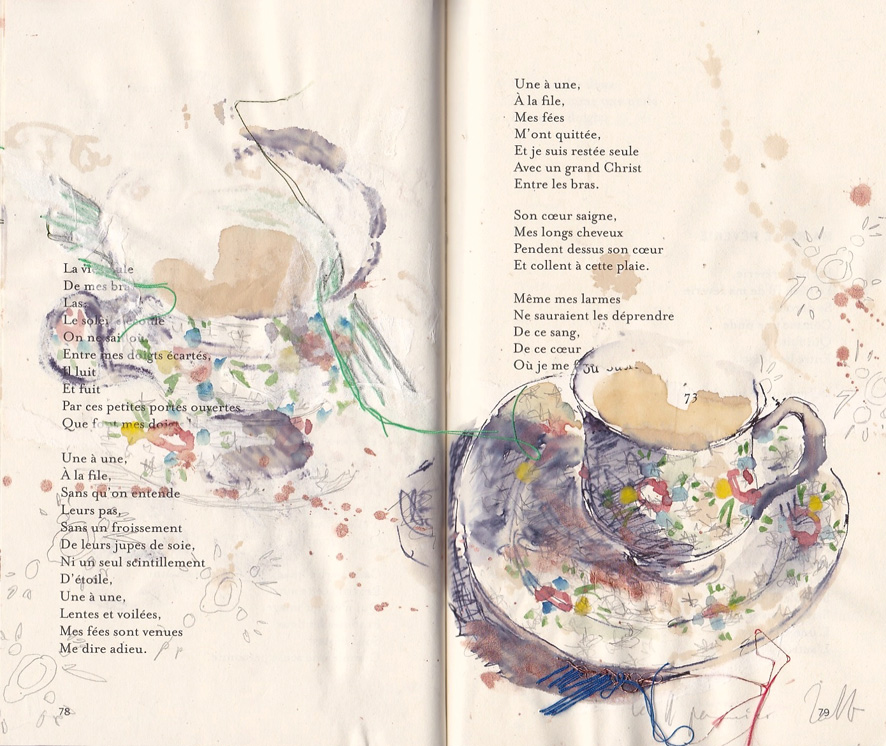 La
De mes
Las,
Le soleil
On ne sait où,
Entre mes doigts écartés,
Il luit
Et fuit
Par ces petites portes ouvertes
Que font mes doigts
Une à une,
À la file,
Sans qu'on entende
Leurs pas,
Sans un froissement
De leurs jupes de soie,
Ni un seul scintillement
D'étoile,
Une à une,
Lentes et voilées,
Mes fées sont venues
Me dire adieu.
78
Une à une,
À la file,
Mes fées
M'ont quittée,
Et je suis restée seule
Avec un grand Christ
Entre les bras.
Son cœur saigne,
Mes longs cheveux
Pendent dessus son cœur
Et collent à cette plaie.
Même mes larmes
Ne sauraient les déprendre
De ce sang,
De ce cœur
Où je me
73
79